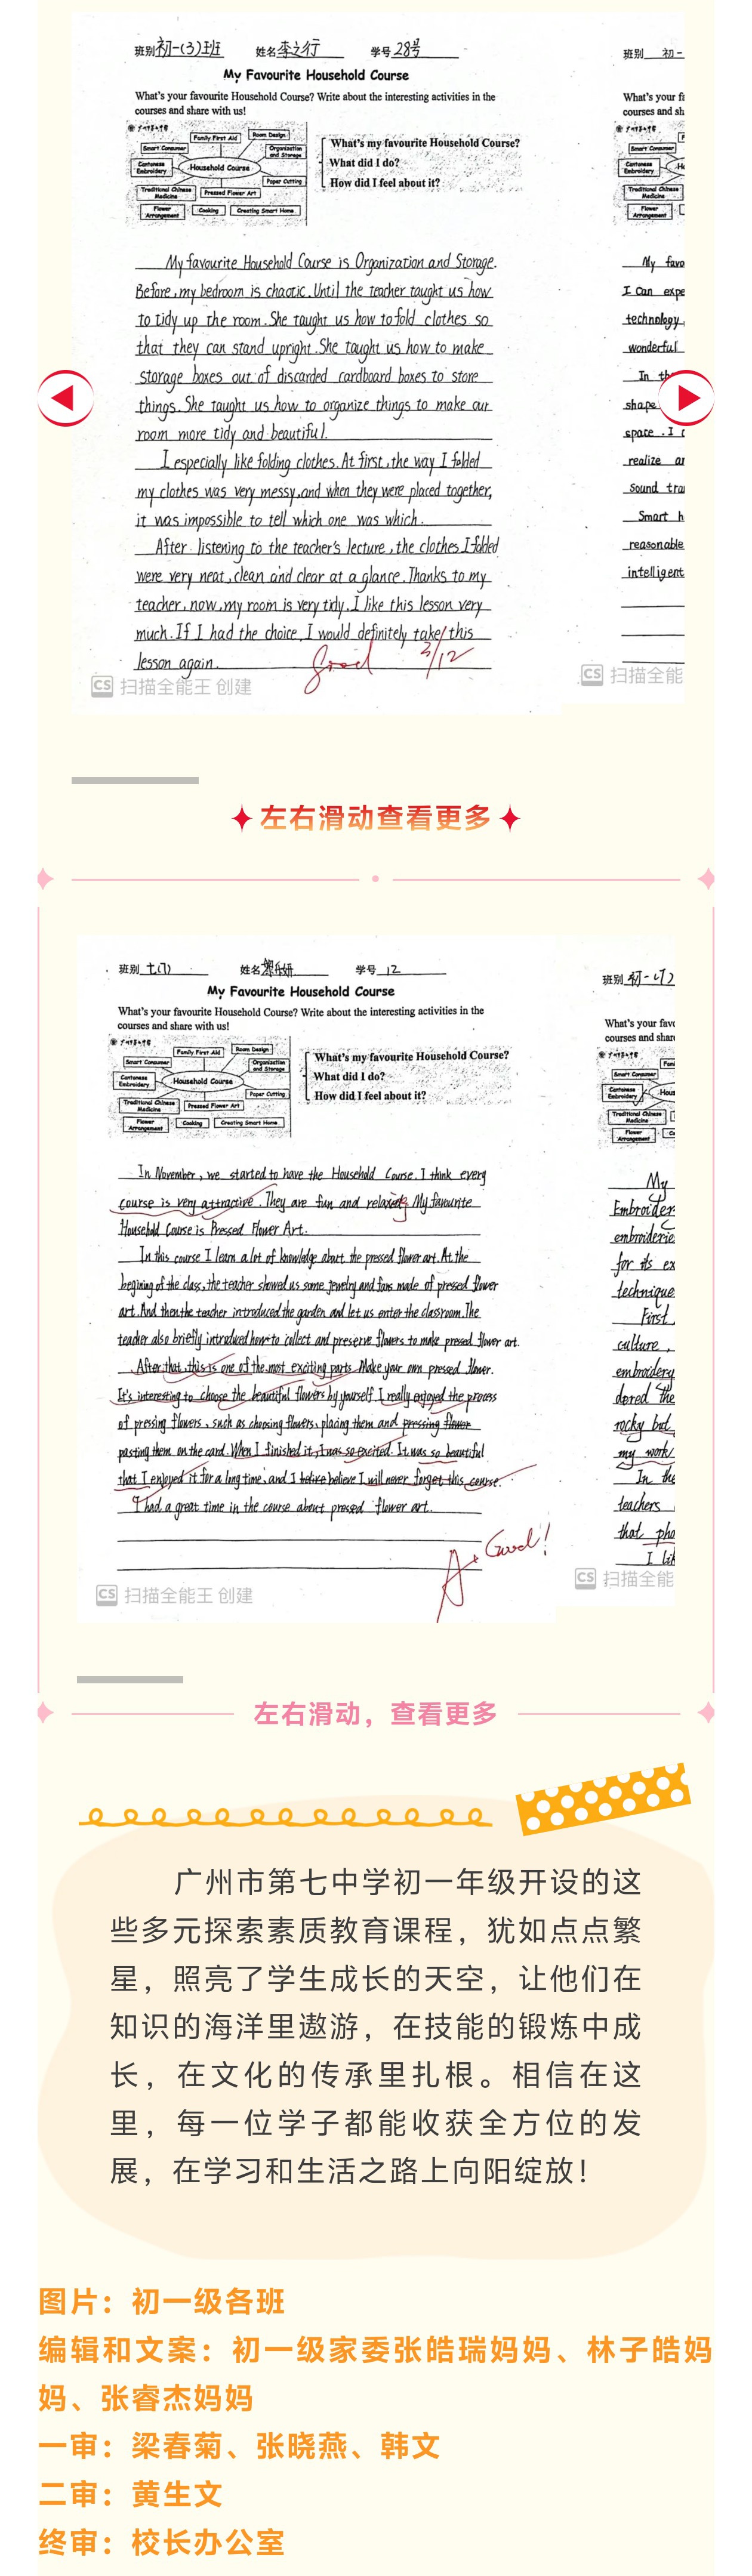 班别 初一(3)班 姓名 李之行 学号 28号
My Favourite Household Course
What's your favourite Household Course? Write about the interesting activities in the
courses and share with us!
Family First Aid
Room Design
Smart Consumer
Organization and Storage
Cantonese Embroidery
Household Course
Paper Cutting
Traditional Chinese Medicine
Pressed Flower Art
Flower Arrangement
Cooking
Creating Smart Home
What's my favourite Household Course?
What did I do?
How did I feel about it?
My favourite Household Course is Organization and Storage.
Before, my bedroom is chaotic. Until the teacher taught us how
to tidy up the room. She taught us how to fold clothes so
that they can stand upright. She taught us how to make
storage boxes out of discarded cardboard boxes to store
things. She taught us how to organize things to make our
room more tidy and beautiful.
I especially like folding clothes. At first, the way I folded
my clothes was very messy, and when they were placed together,
it was impossible to tell which one was which.
After listening to the teacher's lecture, the clothes I folded
were very neat, clean and clear at a glance. Thanks to my
teacher, now, my room is very tidy. I like this lesson very
much. If I had the choice, I would definitely take this
lesson again.
Good 3/12
CS 扫描全能王 创建
班别 初一
What's your f
courses and sh
My favo
I can expe
technology
wonderful
In th
shape
space. I
realize a
sound tra
Smart h
reasonable
intelligent
CS 扫描全能
左右滑动查看更多
班别 七(7) 姓名 学号 12
My Favourite Household Course
What's your favourite Household Course? Write about the interesting activities in the
courses and share with us!
Family First Aid
Room Design
Smart Consumer
Organization and Storage
Cantonese Embroidery
Household Course
Paper Cutting
Traditional Chinese Medicine
Pressed Flower Art
Flower Arrangement
Cooking
Creating Smart Home
What's my favourite Household Course?
What did I do?
How did I feel about it?
In November, we started to have the Household Course. I think every
course is very attractive. They are fun and relaxing. My favourite
Household Course is Pressed Flower Art.
In this course I learn a lot of knowledge about the pressed flower art. At the
begining of the class, the teacher showed us some jewelry and fans made of pressed flower
art. And then the teacher introduced the garden and let us enter the classroom. The
teacher also briefly introduced how to collect and preserve flowers to make pressed flower art.
After that, this is one of the most exciting parts. Make your own pressed flower.
It's interesting to choose the beautiful flowers by yourself. I really enjoyed the process
of pressing flowers, such as choosing flowers, placing them and pressing flower
pasting them on the card. When I finished it, I was so excited. It was so beautiful
that I enjoyed it for a long time, and I believe I will never forget this course.
I had a great time in the course about pressed flower art.
A+ Good!
CS 扫描全能王 创建
班别 初一(7)
What's your favo
courses and share
My
Embroider
embroiderie
for its ex
technique
First,
culture,
embroidery
dered the
rocky but
my work
In the
teachers
that pho
I lik
CS 扫描全能
左右滑动，查看更多
广州市第七中学初一年级开设的这
些多元探索素质教育课程，犹如点点繁
星，照亮了学生成长的天空，让他们在
知识的海洋里遨游，在技能的锻炼中成
长，在文化的传承里扎根。相信在这
里，每一位学子都能收获全方位的发
展，在学习和生活之路上向阳绽放！
图片：初一级各班
编辑和文案：初一级家委张皓瑞妈妈、林子皓妈
妈、张睿杰妈妈
一审：梁春菊、张晓燕、韩文
二审：黄生文
终审：校长办公室